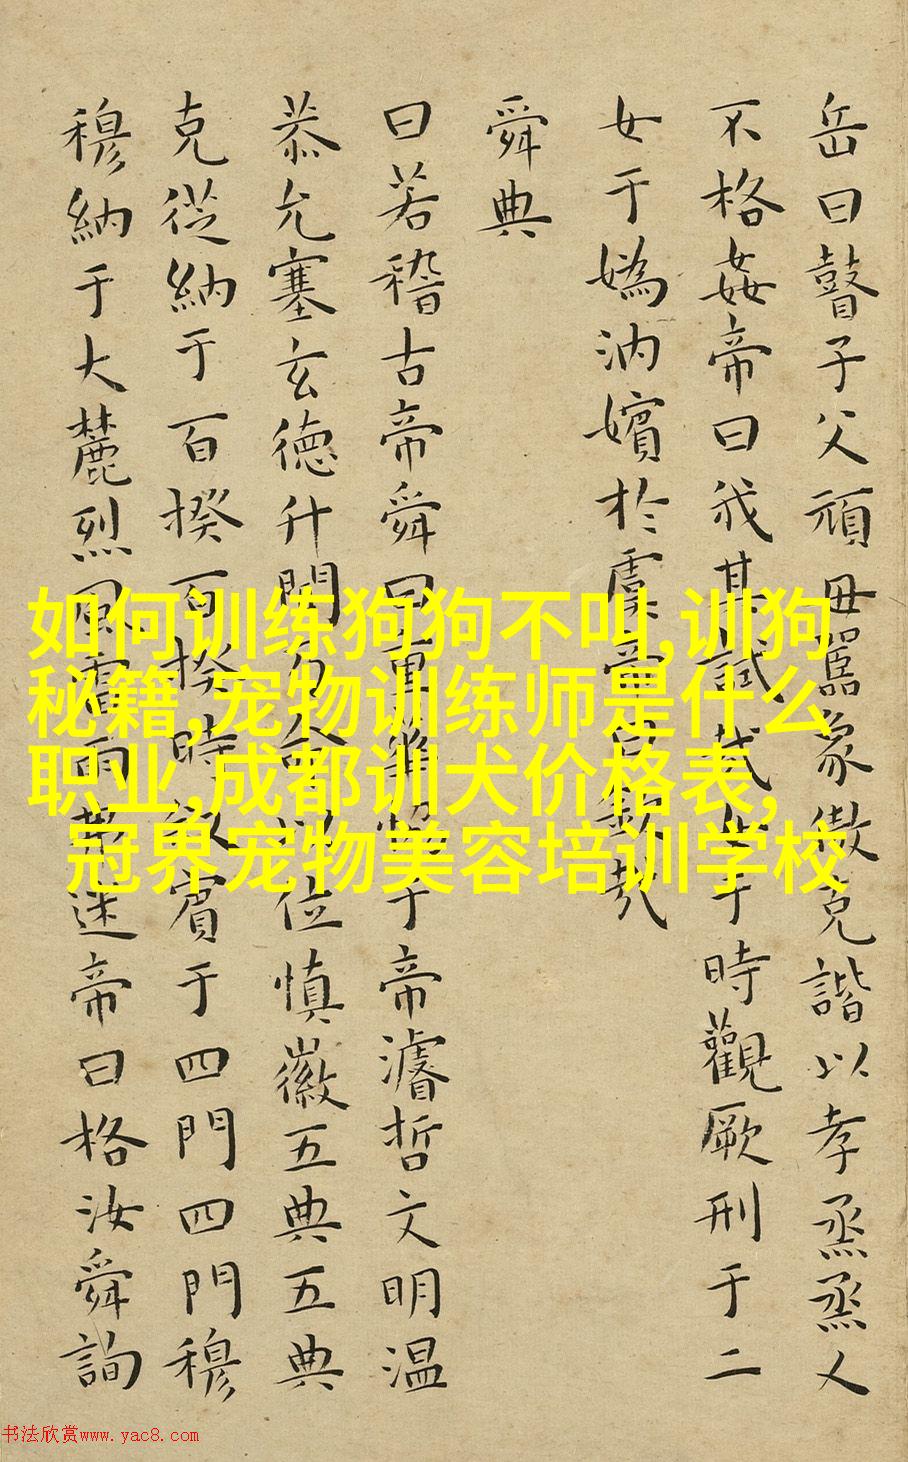 岳曰瞽子父頑毋嚚象傲克諧以孝烝烝乂
不格姦帝曰我其試哉女于時觀厥刑于二
女于媯汭嬪於虞帝曰欽哉
舜典
曰若稽古帝舜曰重華協于帝濬哲文明温
恭允塞玄德升聞乃命以位慎徽五典五典
克從納于百揆百揆時敘賓于四門四門穆
穆納于大麓烈風雷雨弗迷帝曰格汝舜詢
如何训练狗狗不叫,训狗
秘籍,宠物训练师是什么
职业,成都训犬价格表,
冠界宠物美容培训学校
书法欣赏www.yac8.com